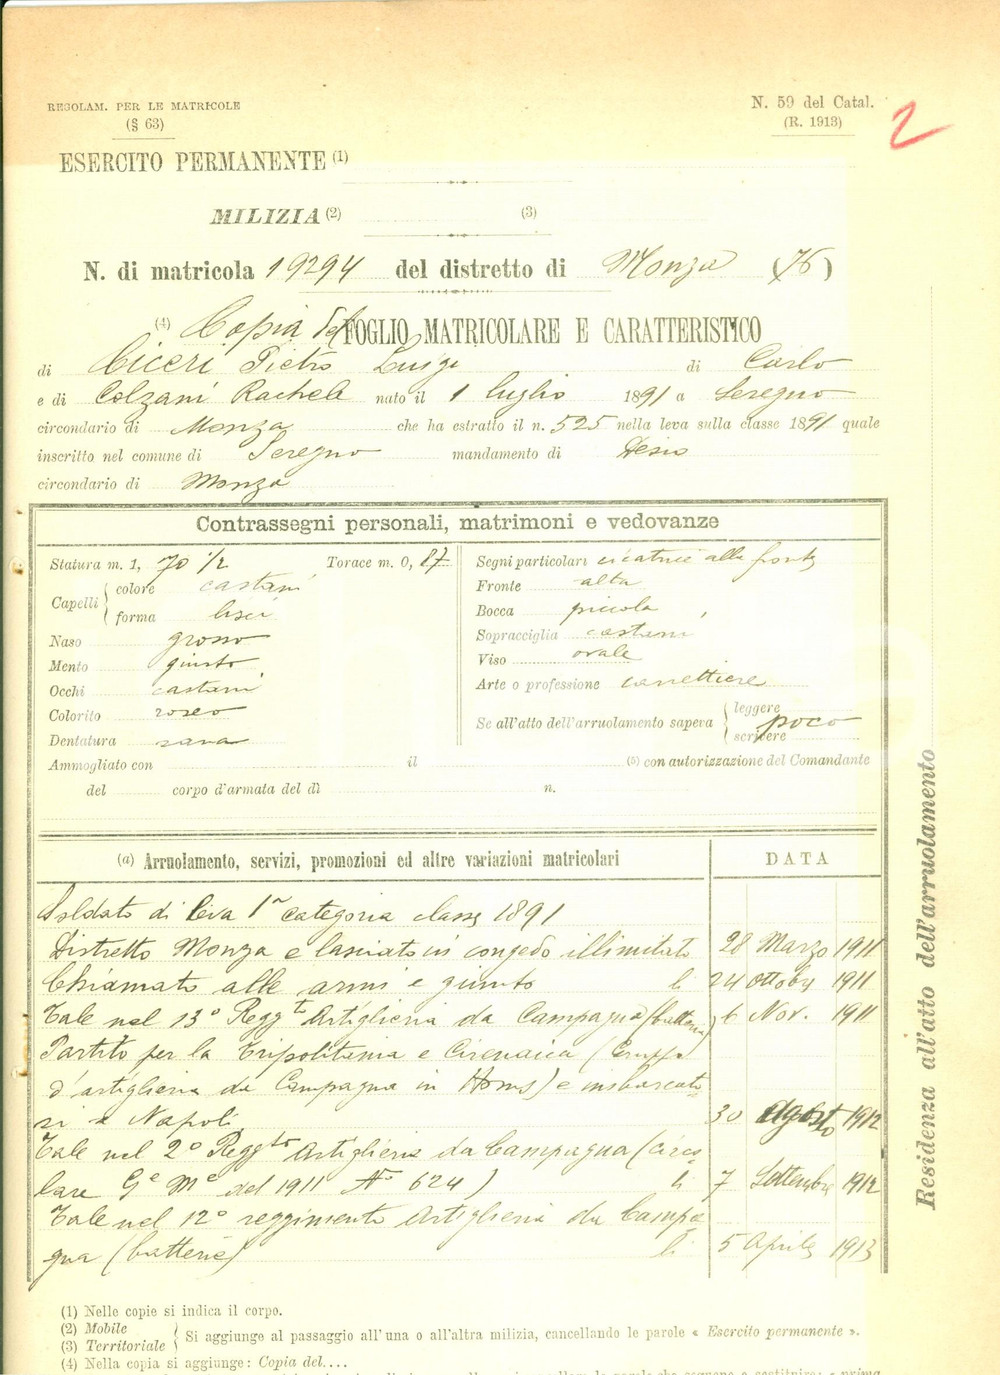 REGOLAM. PER LE MATRICOLE
(§ 63)
N. 59 del Catal.
(R. 1913)
2
ESERCITO PERMANENTE (1)
MILIZIA (2) (3)
N. di matricola 19294 del distretto di Monza (76)
(4) Copia del FOGLIO MATRICOLARE E CARATTERISTICO
di Ciceri Pietro Luigi di Carlo
e di Colzani Rachele nato il 1 luglio 1891 a Seregno
circondario di Monza che ha estratto il n. 525 nella leva sulla classe 1891 quale
inscritto nel comune di Seregno mandamento di Desio
circondario di Monza
Contrassegni personali, matrimoni e vedovanze
Statura m. 1, 70 1/2 Torace m. 0, 87
Capelli { colore castani
forma lisci
Naso grosso
Mento giusto
Occhi castani
Colorito roseo
Dentatura sana
Segni particolari cicatrice alla fronte
Fronte alta
Bocca piccola
Sopracciglia castani
Viso ovale
Arte o professione carrettiere
Se all'atto dell'arruolamento sapeva { leggere
scrivere poco
Ammogliato con il (5) con autorizzazione del Comandante
del corpo d'armata del dì n.
(a) Arruolamento, servizi, promozioni ed altre variazioni matricolari DATA
Soldato di leva 1a categoria classe 1891
Distretto Monza e lasciato in congedo illimitato 28 Marzo 1911
Chiamato alle armi e giunto li 24 Ottobre 1911
Tale nel 13° Reggto Artiglieria da Campagna (batteria) 6 Nov. 1911
Partito per la Tripolitania e Cirenaica (Gruppo
d'artiglieria da Campagna in Homs) e imbarcato-
si a Napoli 30 Agosto 1912
Tale nel 2° Reggto Artiglieria da Campagna (circo-
lare Ge Me del 1911 N° 624) li 7 Settembre 1912
Tale nel 12° reggimento Artiglieria da Campa-
gna (batterie) li 5 Aprile 1913
Residenza all'atto dell'arruolamento
(1) Nelle copie si indica il corpo.
(2) Mobile
(3) Territoriale } Si aggiunge al passaggio all'una o all'altra milizia, cancellando le parole « Esercito permanente ».
(4) Nella copia si aggiunge: Copia del....